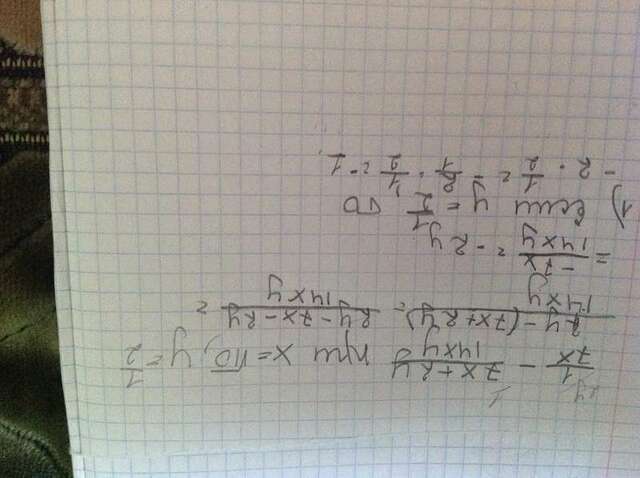 1/7x - 7x+2y/14xy при x=√10, y=1/2
2y-(7x+2y)/14xy = 2y-7x-2y/14xy =
= -7x/14xy = -2y
1) Если y=1/2, то
-2 · 1/2 = -2/1 · 1/2 = -1